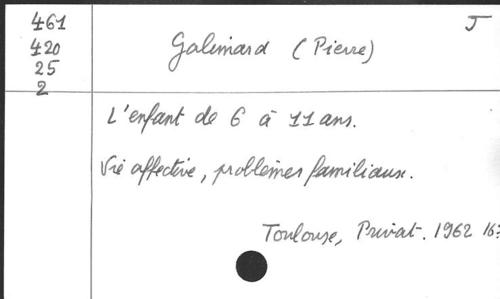 461
420
25
2
J
Galimard (Pierre)
L'enfant de 6 à 11 ans.
Vie affective, problèmes familiaux.
Toulouse, Privat. 1962